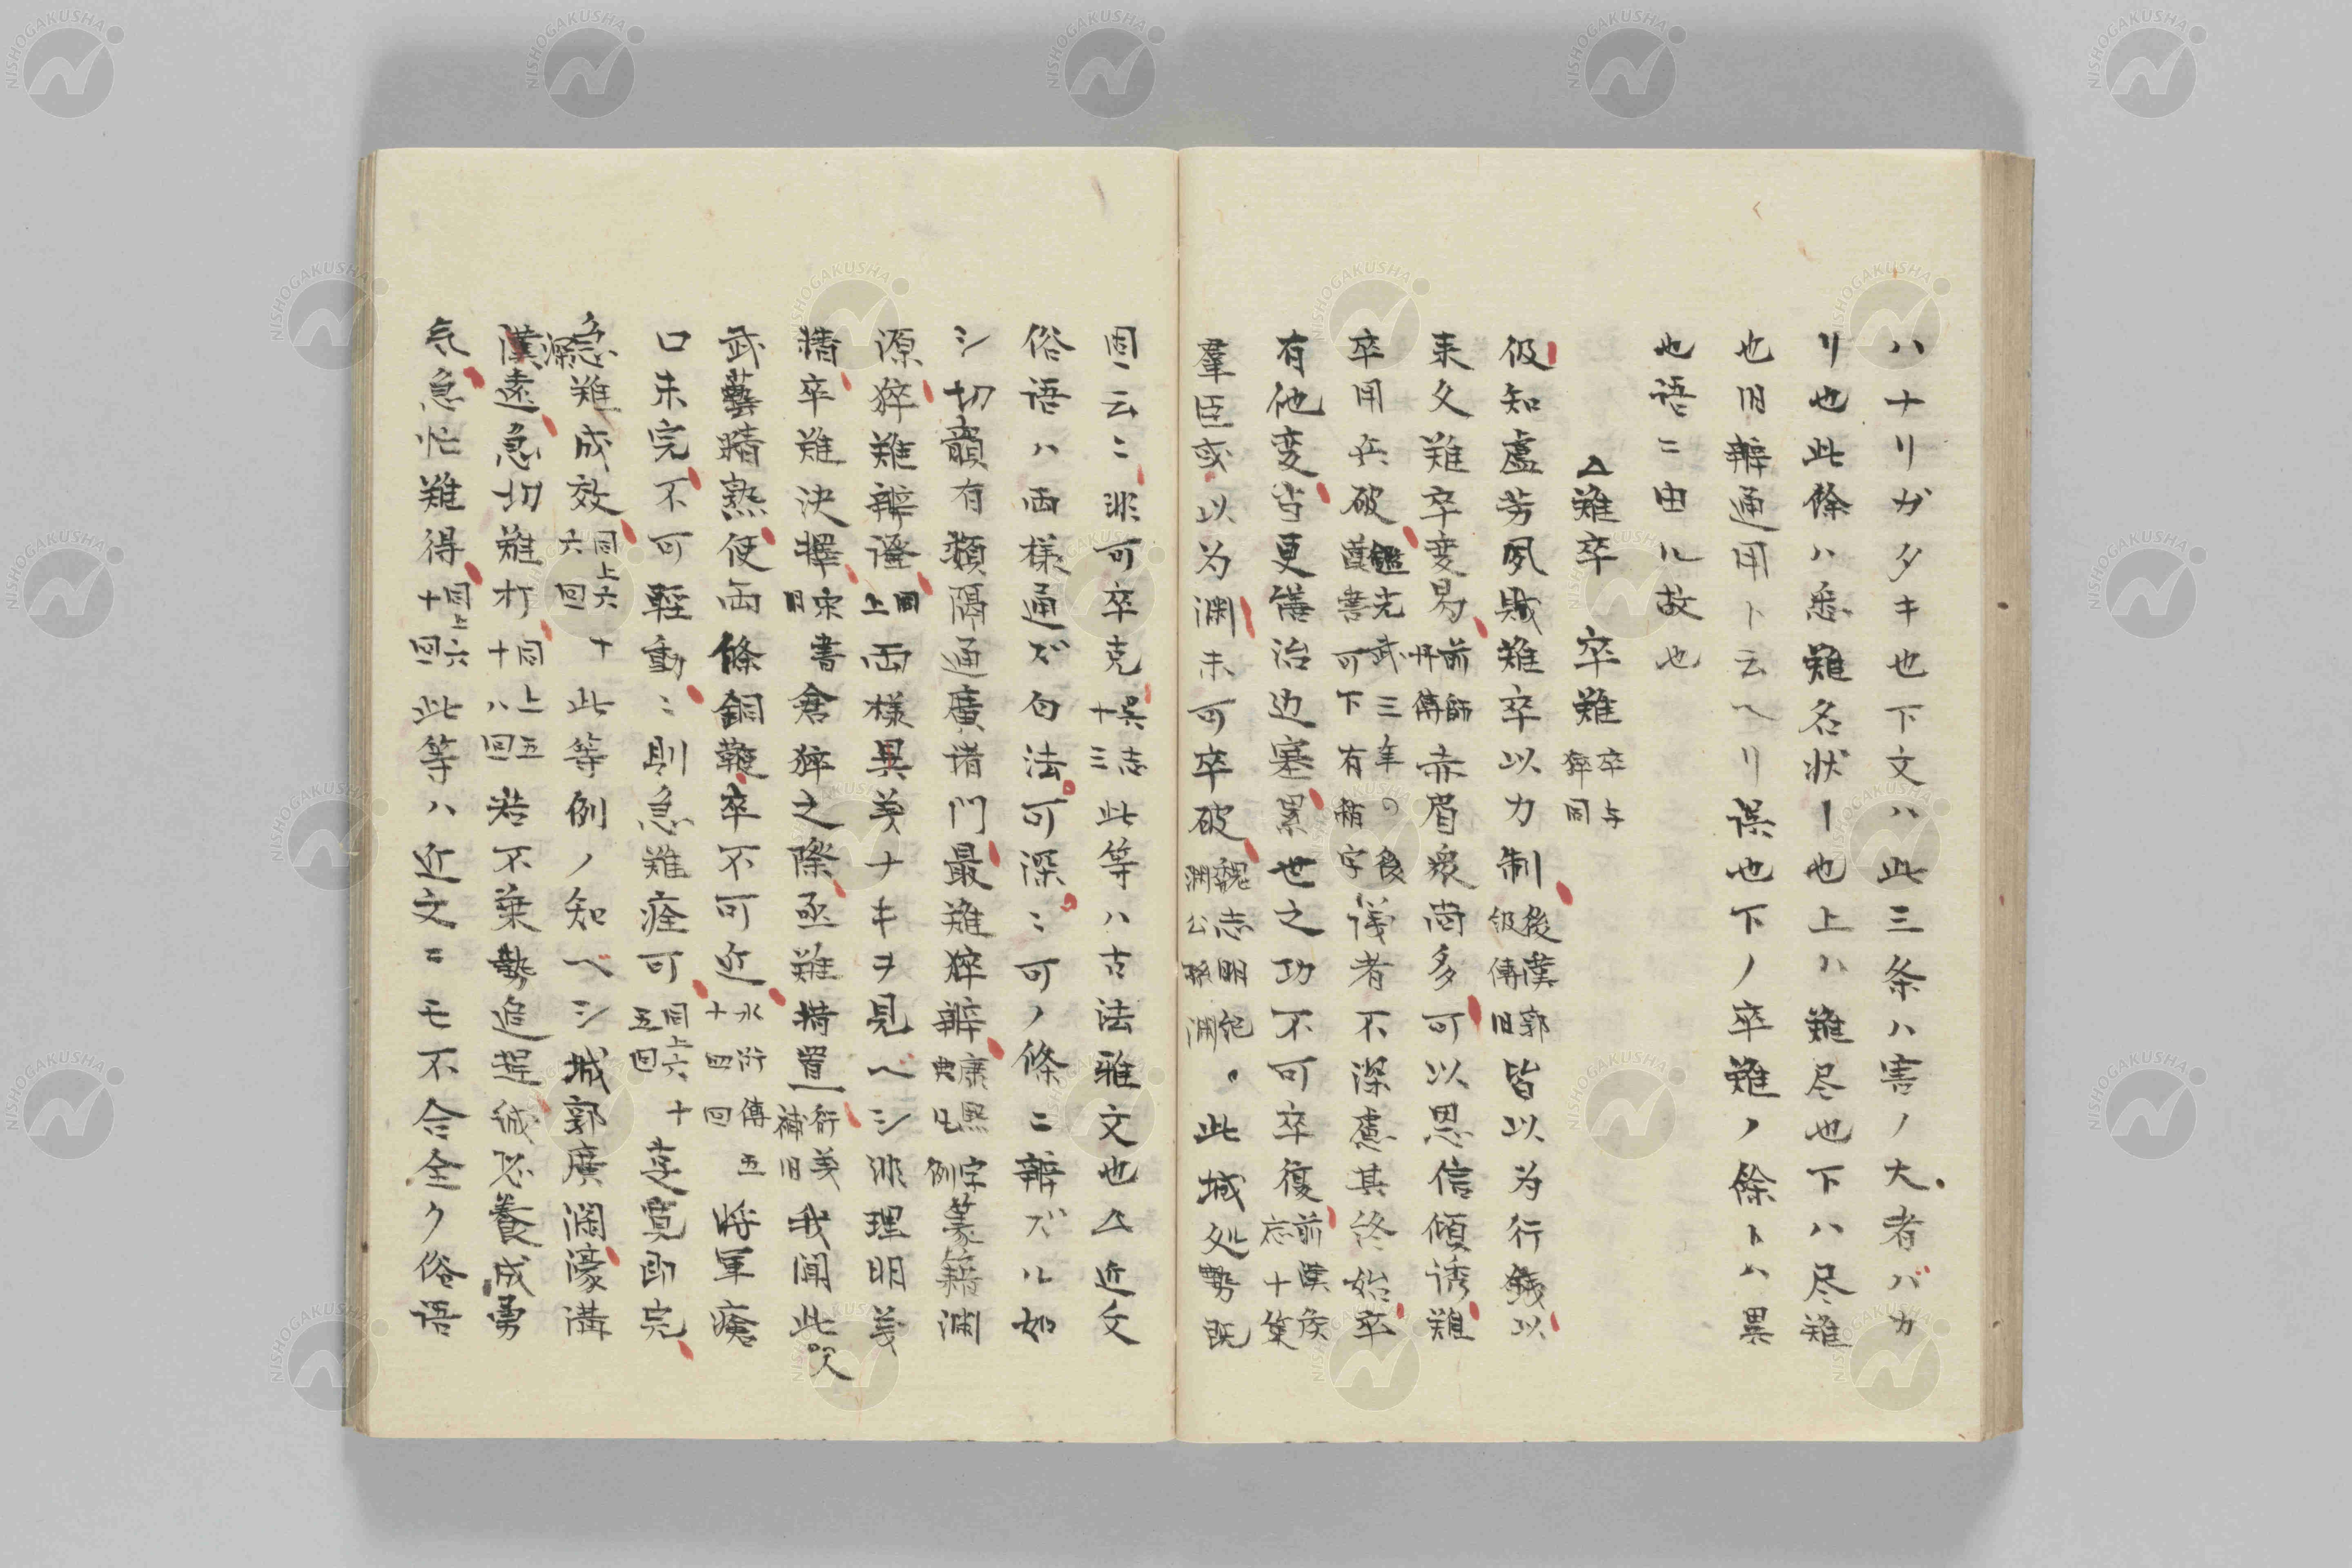 ハナリガタキ也下文ハ此三条ハ害ノ大者バカ
リ也此餘ハ悉難名状ー也上ハ難尽也下ハ尽難
也旧辨通用ト云ヘリ誤也下ノ卒難ノ餘トハ異
也語ニ由ル故也
△難卒 卒難 卒与猝同
伋知盧芳夙賊難卒以力制 後漢郭伋傳旧 皆以为行錢以
来久難卒変易 前師丹傳 赤眉衆尚多可以恩信傾誘難
卒用兵破 鑑光武三年の後漢書可下有稍字 議者不深慮其終始卒
有他変当更繕治边塞累世之功不可卒復 前漢侯応十策
羣臣或以为渊未可卒破 魏志明紀渊公孫渊 。此城処勢既
固云〻非可卒克 呉志十三 此等ハ古法雅文也△近文
俗语ハ両様通ズ句法可深〻可ノ條ニ辨ズル如
シ切韻有類隔通廣諸門最難猝辨 康熙字典凡例 篆籀渊
源猝難辨證 同上 両様異義ナキヲ見ベシ非理明義
精卒難決擇 宋旧 書倉猝之際亟難措置 衍義補旧 我聞此 人
武藝精熟使両條銅鞭卒不可近 水滸傳五十四回 将軍瘡
口未完不可輕動〻則急難痊可 同上六十五回 李寛即完
急難成效 同上六十六回 此等例ノ知ベシ城郭廣濶濠溝
深漢遠急切難打 同上五十八回 若不乗勢追趕誠恐養成勇
気急忙難得 同上六十回 此等ハ近文ニモ不合全ク俗语
NISHOGAKUSHA